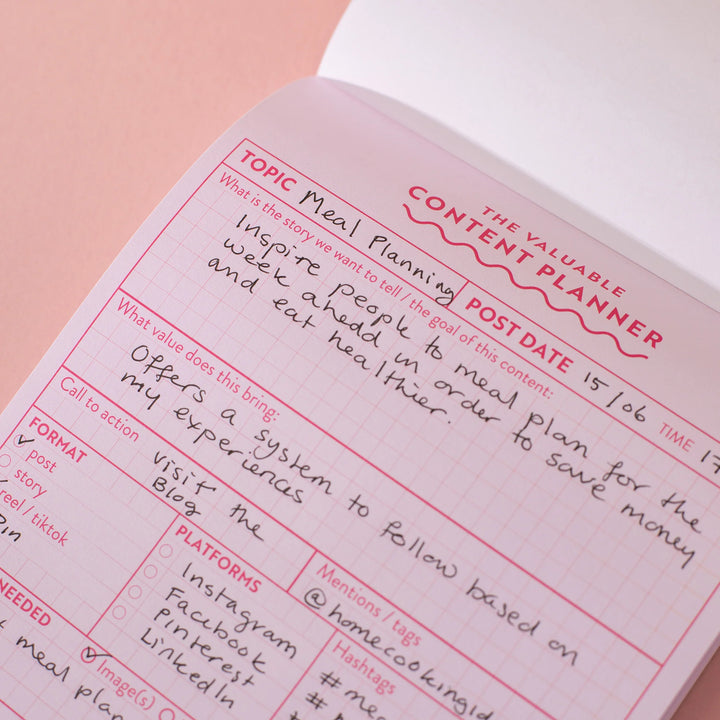 THE VALUABLE
CONTENT PLANNER
TOPIC Meal Planning
POST DATE 15/06 TIME 17
What is the story we want to tell / the goal of this content:
Inspire people to meal plan for the
week ahead in order to save money
and eat healthier.
What value does this bring:
Offers a system to follow based on
my experiences
Call to action
visit the
Blog
Mentions / tags
@homecookingid
FORMAT
post
story
reel / tiktok
Pin
PLATFORMS
Instagram
Facebook
Pinterest
LinkedIn
Hashtags
#mea
#
#
NEEDED
meal plan
Image(s)